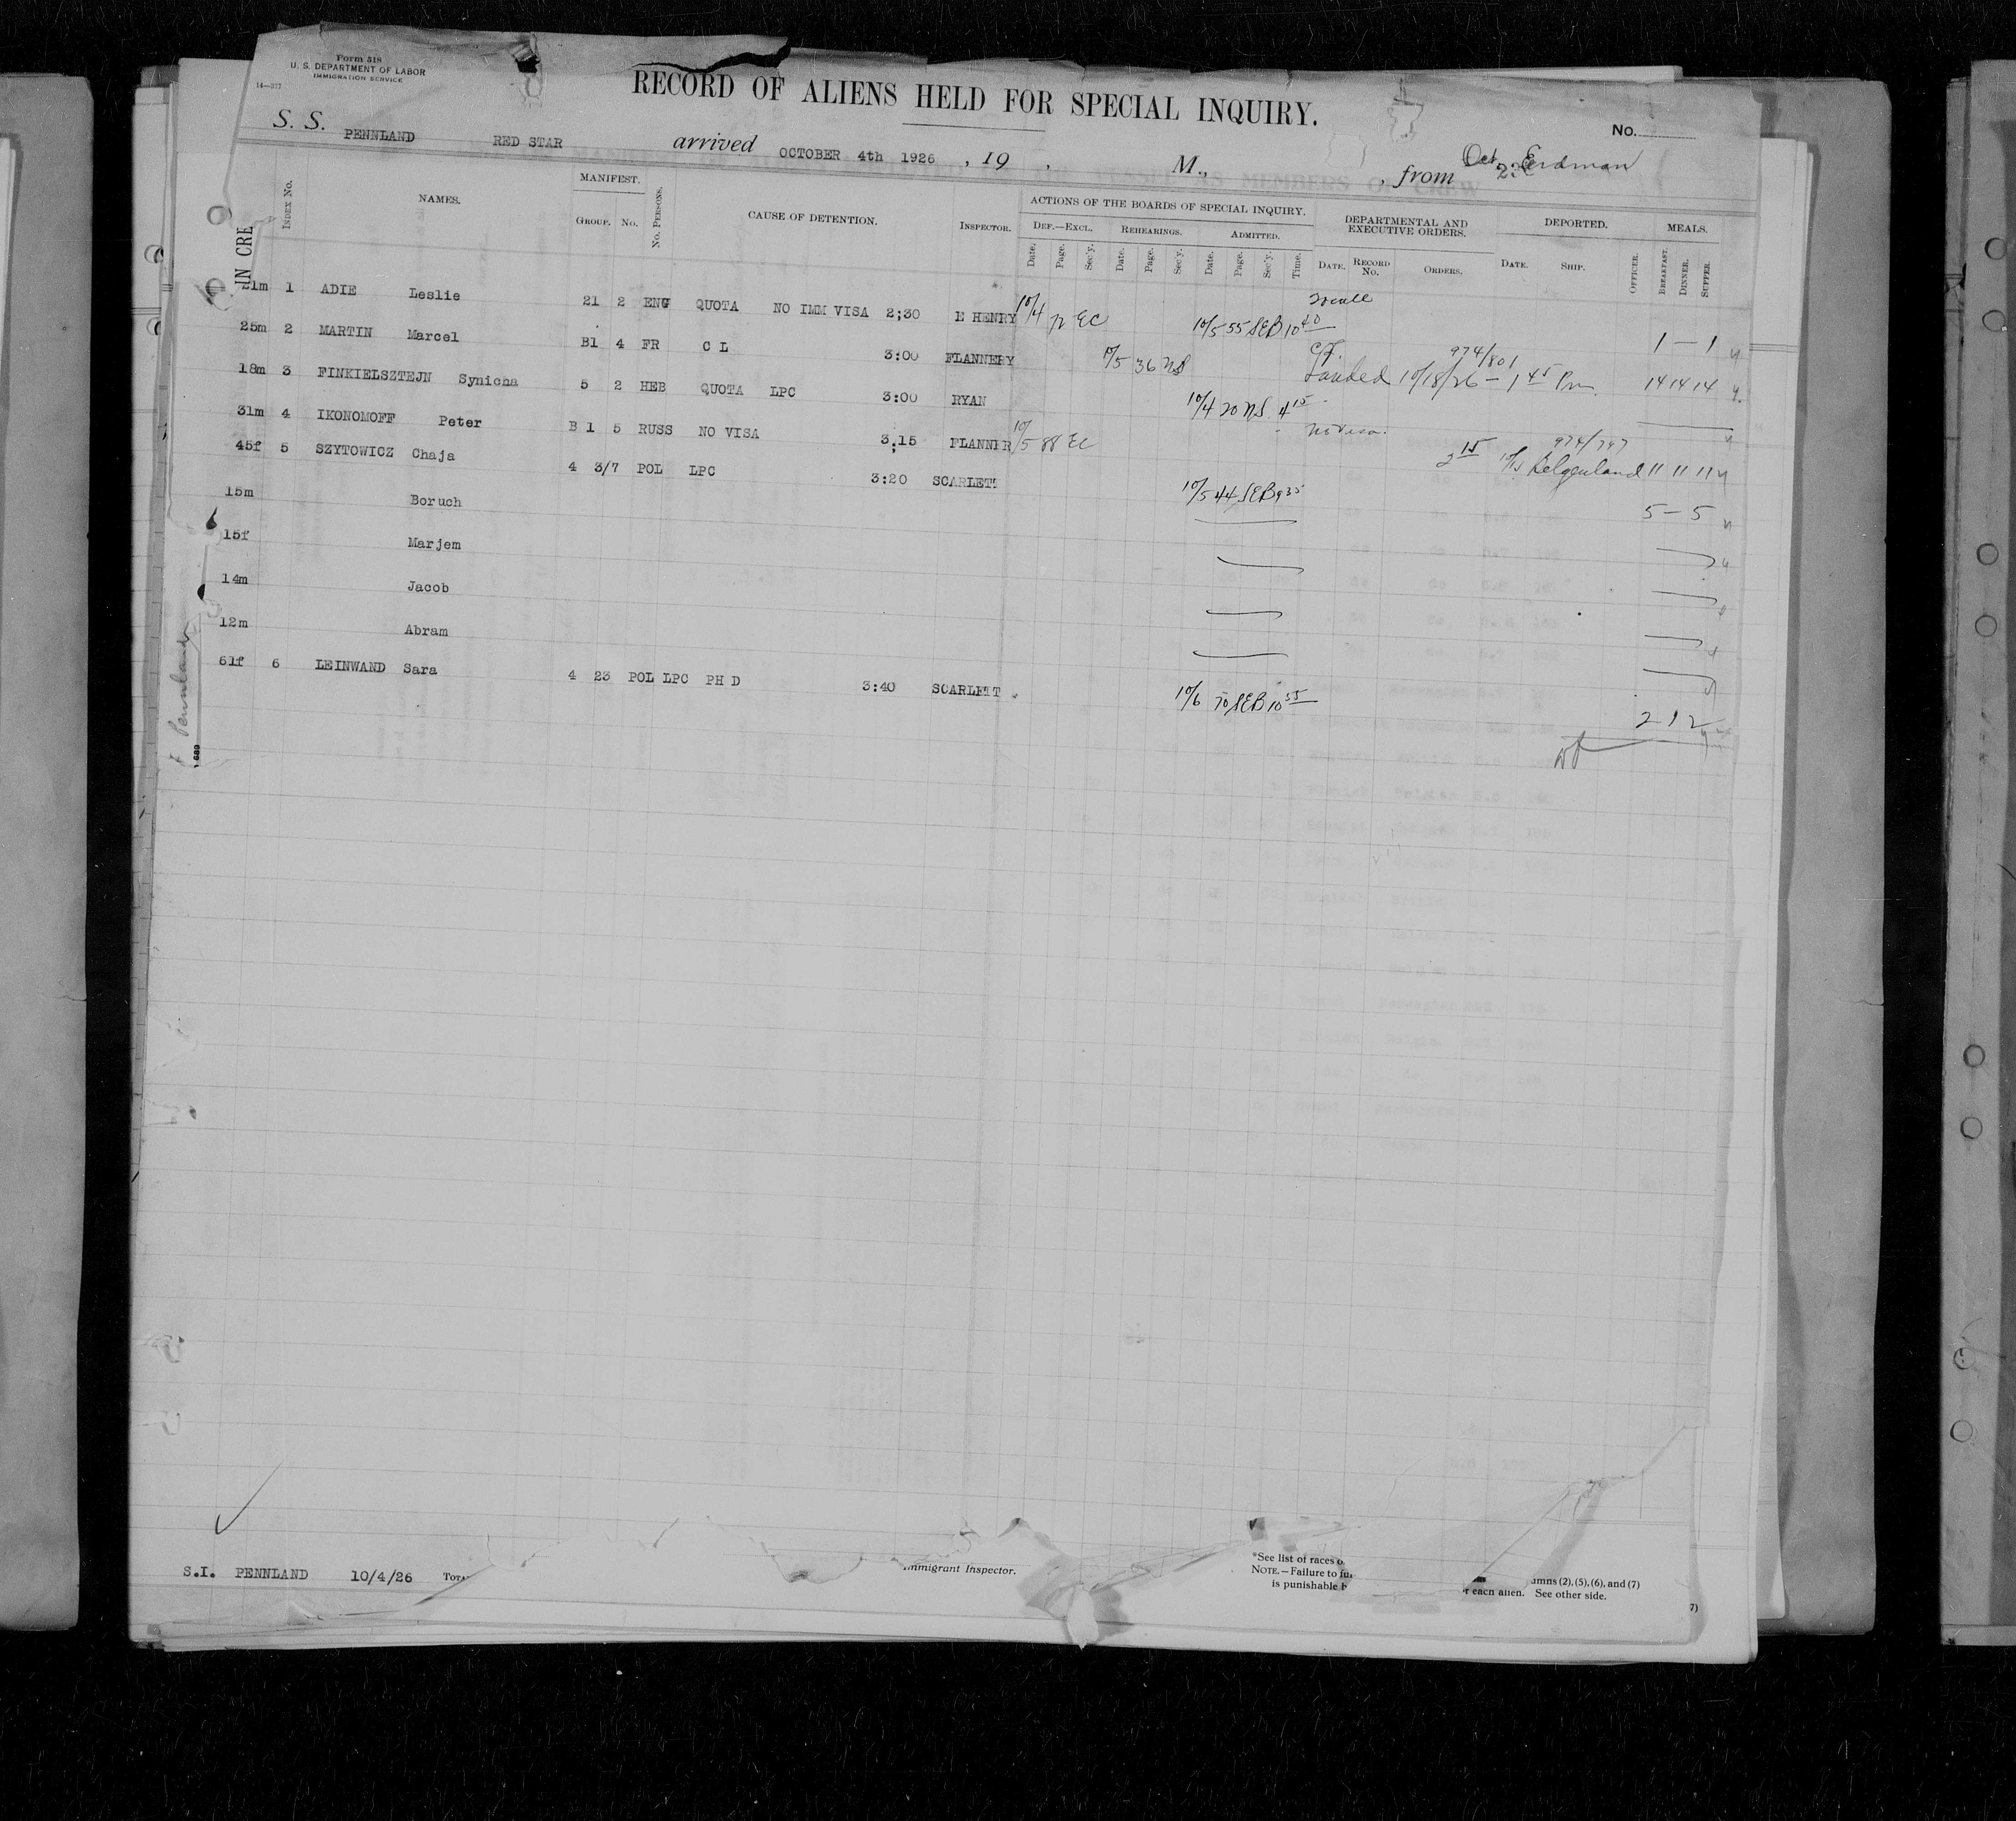 Form 518
U. S. DEPARTMENT OF LABOR
IMMIGRATION SERVICE
14—377
RECORD OF ALIENS HELD FOR SPECIAL INQUIRY.
No.
S. S. PENNLAND RED STAR arrived OCTOBER 4th 1926 , 19 , M., , from Oct. Erdman
IN CRE
INDEX No. NAMES. MANIFEST. GROUP. No. No. PERSONS. CAUSE OF DETENTION. INSPECTOR. ACTIONS OF THE BOARDS OF SPECIAL INQUIRY. DEPARTMENTAL AND EXECUTIVE ORDERS. DEPORTED. MEALS.
DEF.—EXCL. REHEARINGS. ADMITTED.
Date. Page. Sec'y. Date. Page. Sec'y. Date. Page. Sec'y. Time. DATE. RECORD No. ORDERS. DATE. SHIP. OFFICER. BREAKFAST. DINNER. SUPPER.
21m 1 ADIE Leslie 21 2 ENG QUOTA NO IMM VISA 2;30 E HENRY 10/4 EC 10/5 55 SEB 10 40 1 — 1
25m 2 MARTIN Marcel B1 4 FR C L 3:00 FLANNERY 10/5 36 NS 974/801 Landed 10/18/26 — 1 45 Pm 14 14 14
18m 3 FINKIELSZTEJN Synicha 5 2 HEB QUOTA LPC 3:00 RYAN 10/4 20 NS 4 15
31m 4 IKONOMOFF Peter B 1 5 RUSS NO VISA 3.15 FLANNER 10/5 88 EC No Visa. 2 15 974/797 Belgenland 11 11 11
45f 5 SZYTOWICZ Chaja 4 3/7 POL LPC 3:20 SCARLETT 10/5 44 SEB 9 35 5 — 5
15m Boruch
15f Marjem
14m Jacob
12m Abram
61f 6 LEINWAND Sara 4 23 POL LPC PH D 3:40 SCARLETT 10/6 70 SEB 10 55 2 1 2
Pennland
689
S.I. PENNLAND 10/4/26 TOTA
Immigrant Inspector.
*See list of races o
NOTE.—Failure to fu
is punishable b
umns (2), (5), (6), and (7)
r each alien. See other side.
7)